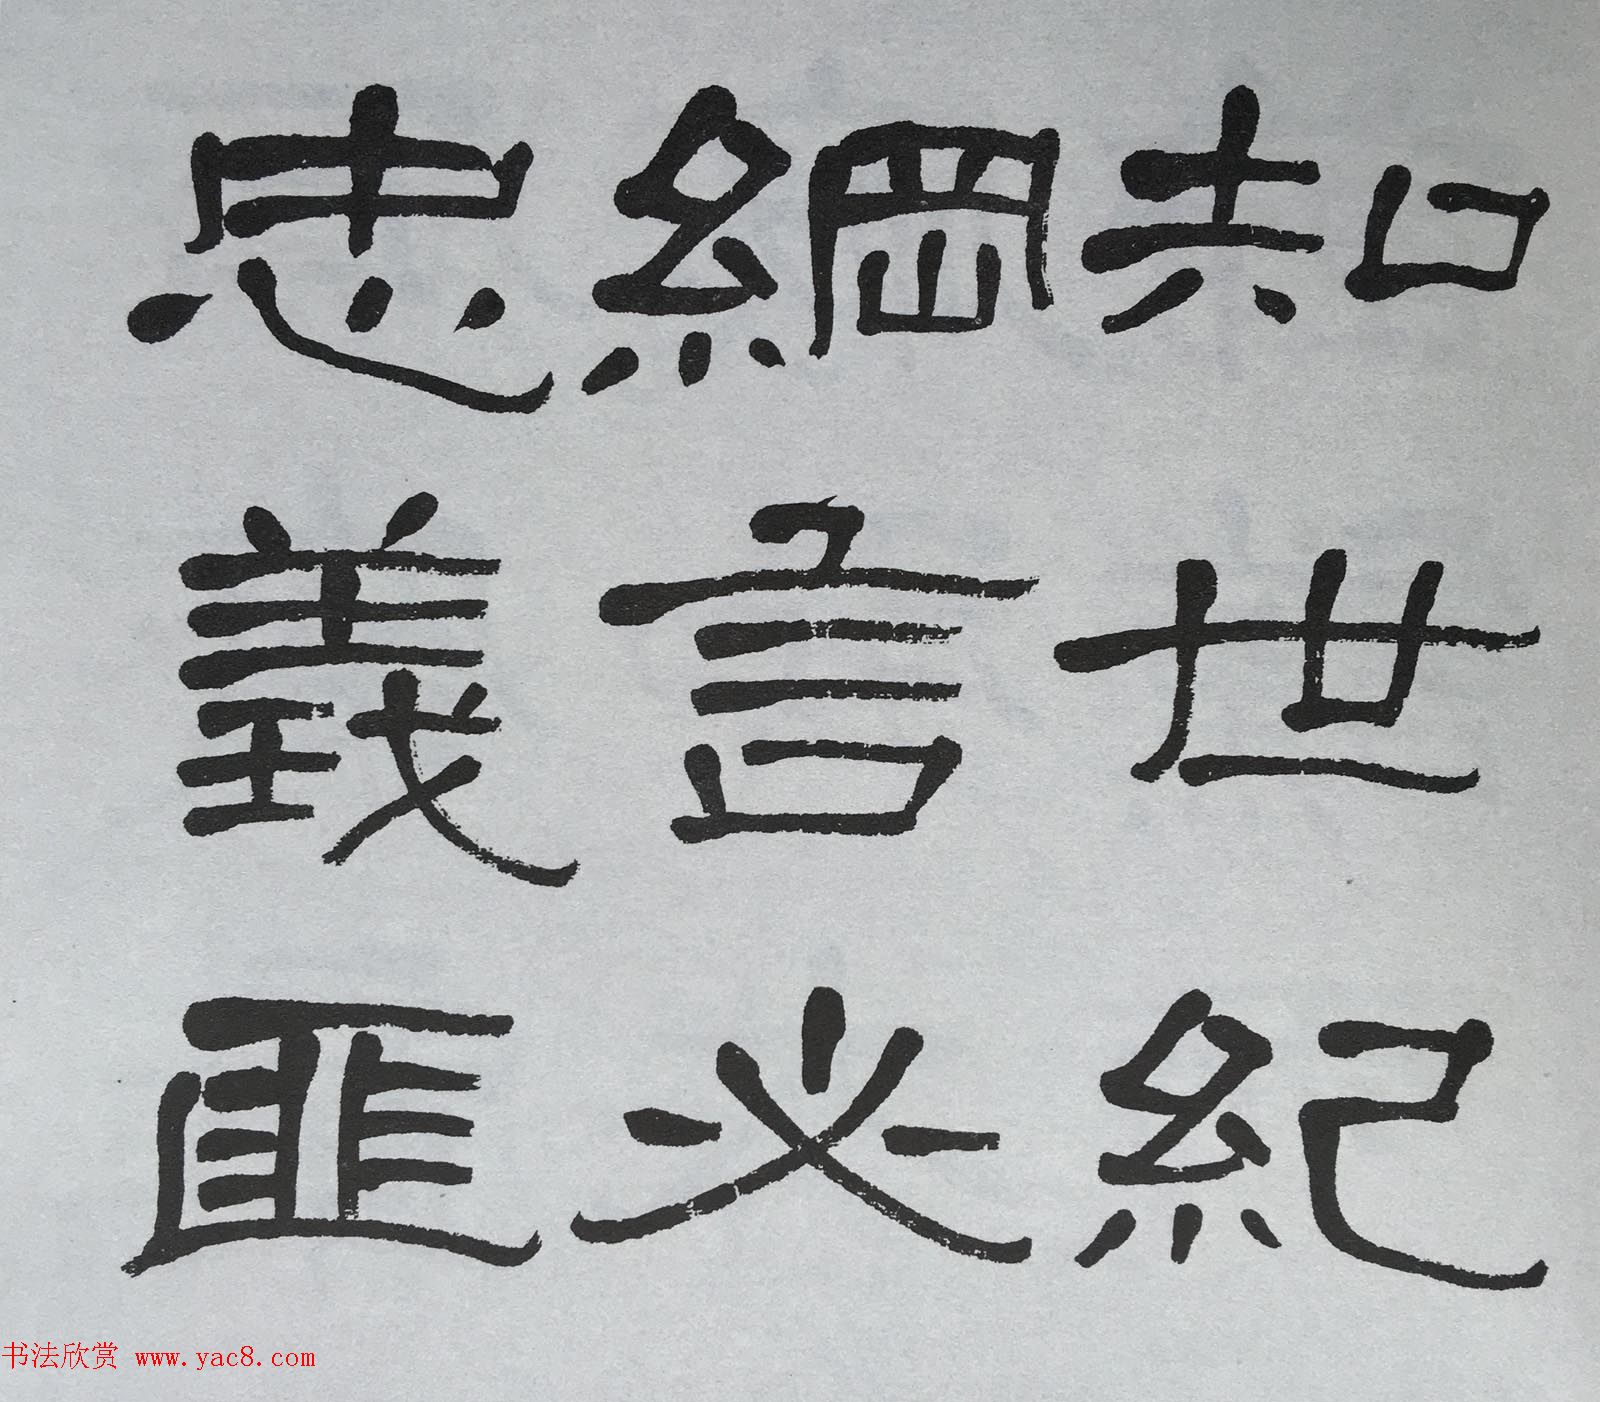 知世紀
綱言必
忠義匪
书法欣赏 www.yac8.com